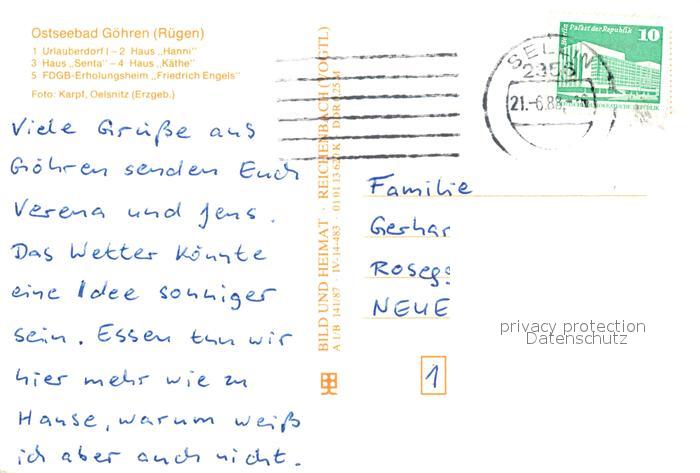 Ostseebad Göhren (Rügen)
1 Urlauberdorf I – 2 Haus „Hanni"
3 Haus „Senta" – 4 Haus „Käthe"
5 FDGB-Erholungsheim „Friedrich Engels"
Foto: Karpf, Oelsnitz (Erzgeb.)
Viele Grüße aus
Göhren senden Euch
Verena und Jens.
Das Wetter könnte
eine Idee sonniger
sein. Essen tun wir
hier mehr wie zu
Hause, warum weiß
ich aber auch nicht.
BILD UND HEIMAT · REICHENBACH (VOGTL)
A 1/B 141/87 IV-14-483 · 01 01 13 622 K DDR 0,25 M
Palast der Republik
10
SELLIN
2356
21.-6.88
Familie
Gerhar
Roseg
NEUE
1
privacy protection
Datenschutz